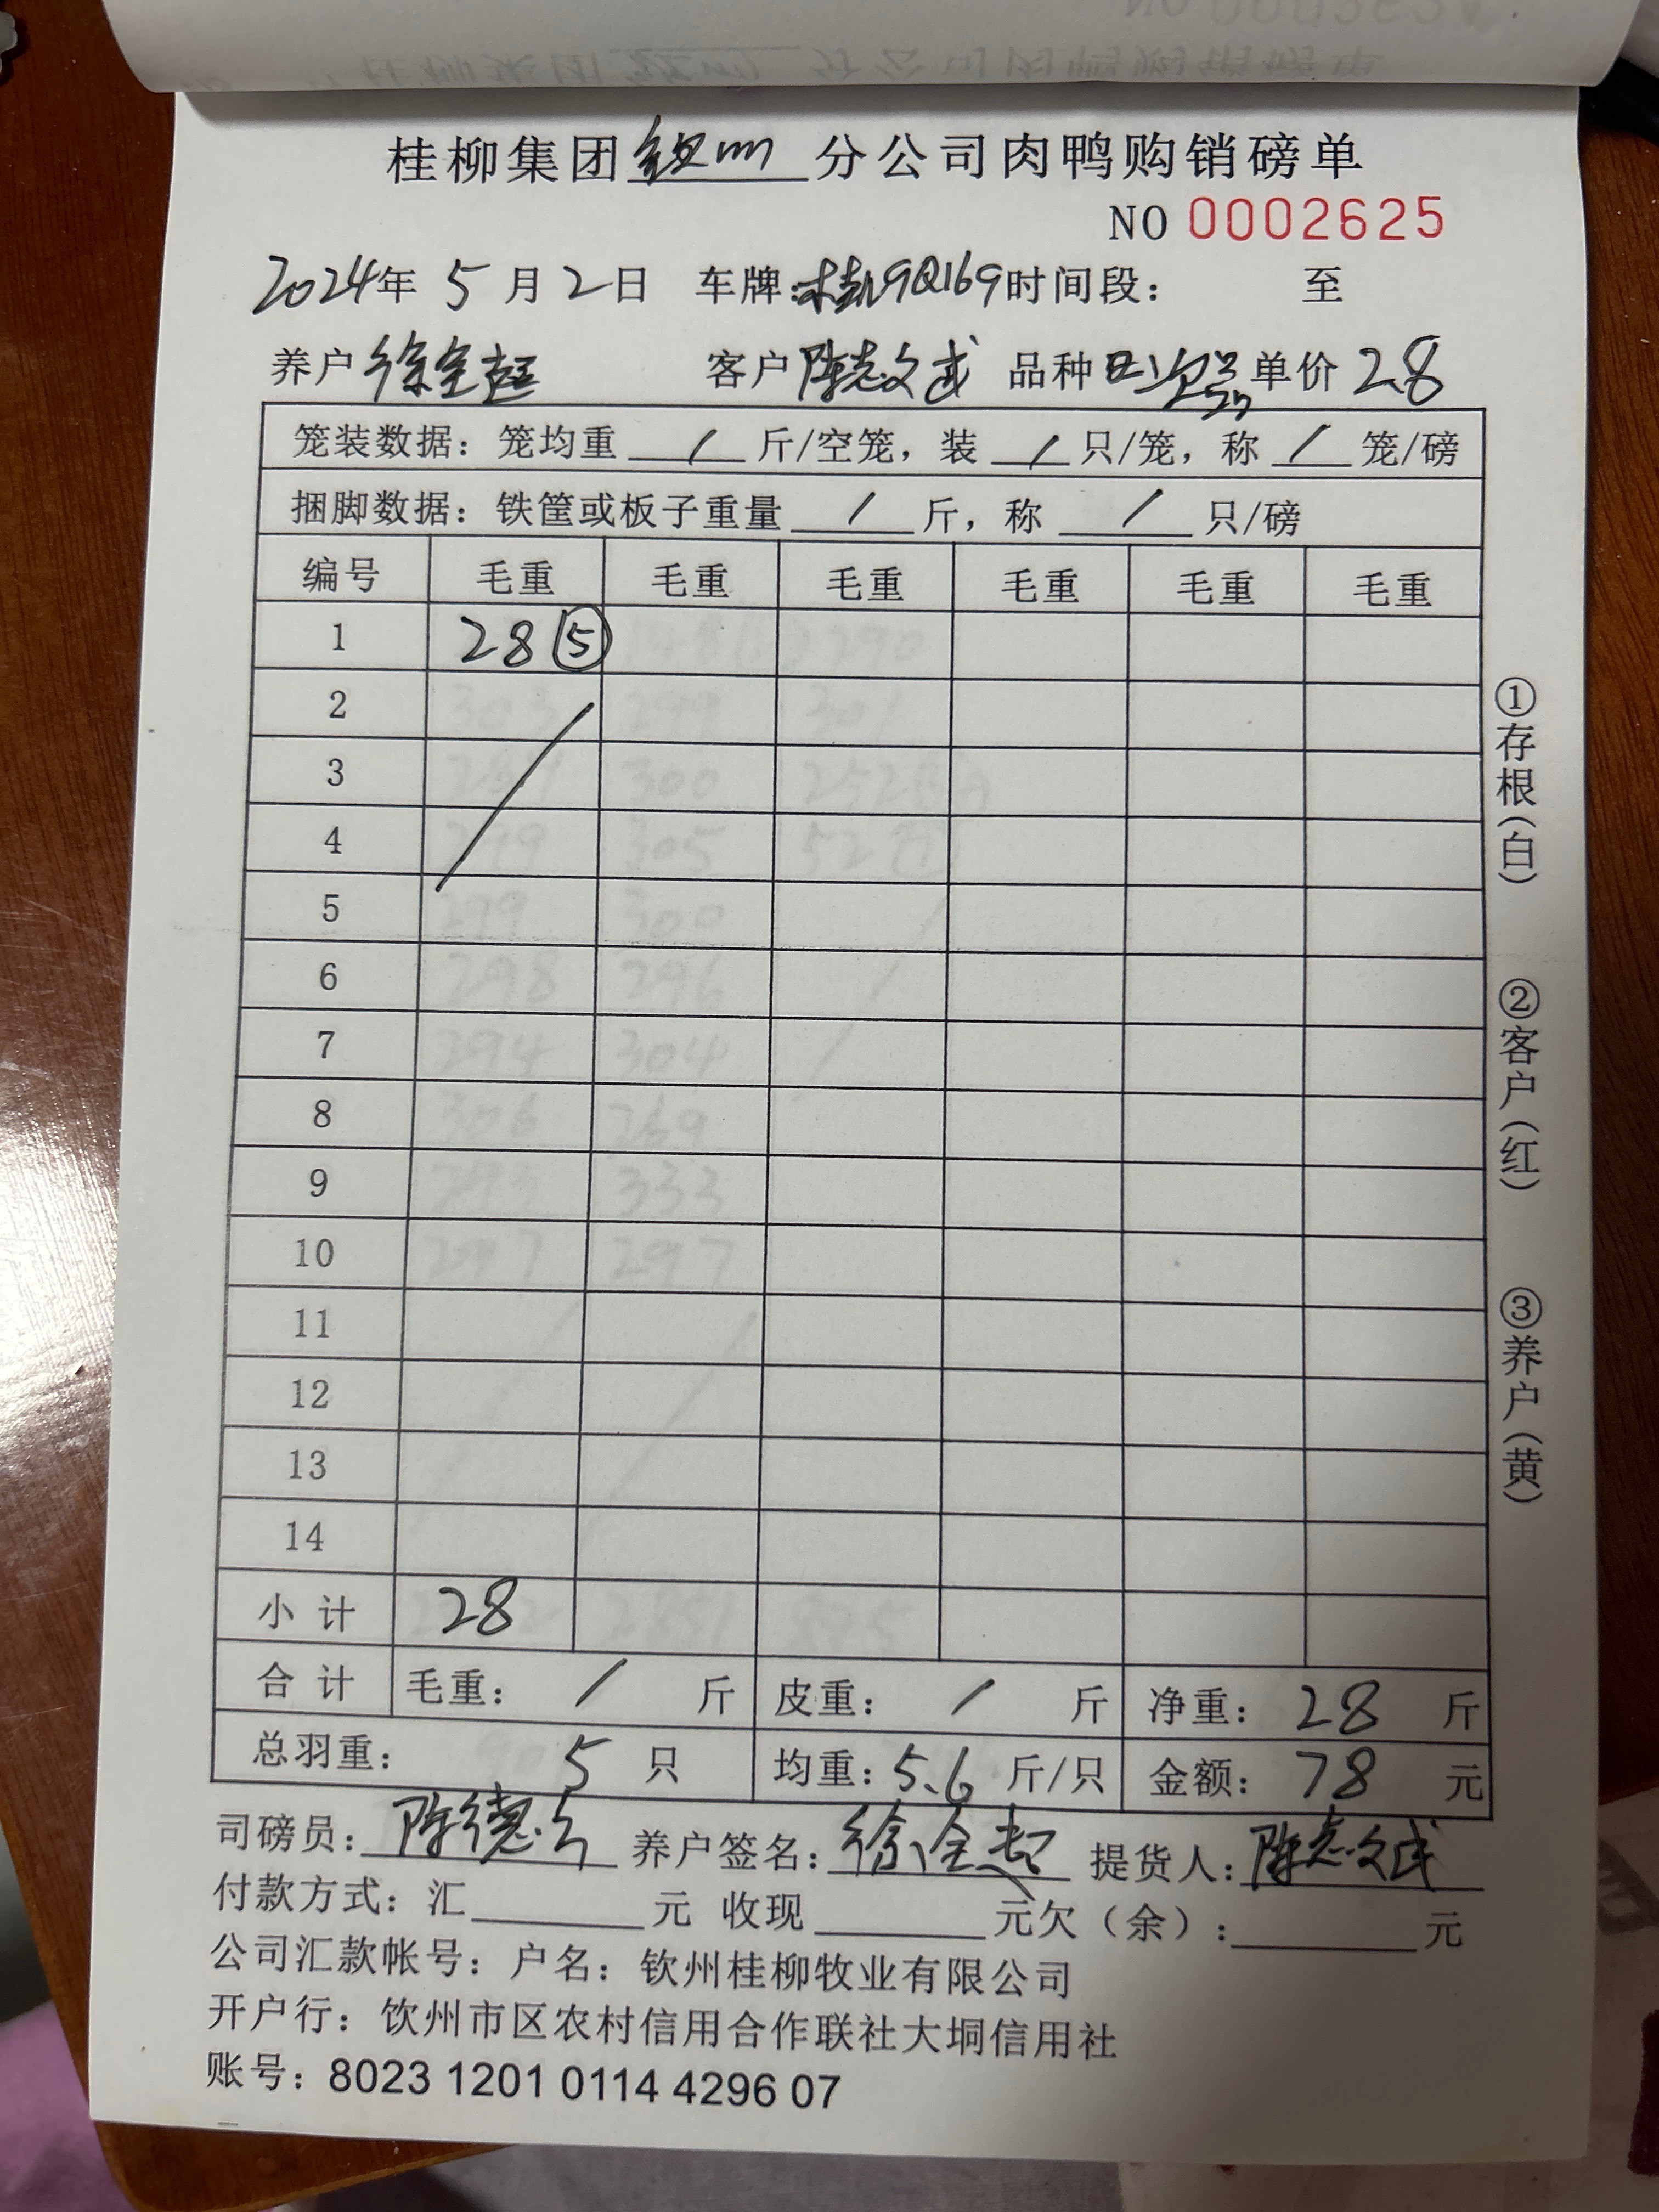 桂柳集团钦州分公司肉鸭购销磅单
NO 0002625
2024年 5 月 2 日 车牌:桂N9Q169时间段: 至
养户 徐全超 客户 陈志文武 品种 单价 2.8
笼装数据:笼均重 / 斤/空笼,装 / 只/笼,称 / 笼/磅
捆脚数据:铁筐或板子重量 / 斤,称 / 只/磅
编号 毛重 毛重 毛重 毛重 毛重 毛重
1 28 ⑤
2
3
4
5
6
7
8
9
10
11
12
13
14
小计 28
合计 毛重: / 斤 皮重: / 斤 净重: 28 斤
总羽重: 5 只 均重:5.6 斤/只 金额: 78 元
司磅员:陈德 养户签名:徐全超 提货人:陈志文武
付款方式:汇 元 收现 元欠(余): 元
公司汇款帐号:户名:钦州桂柳牧业有限公司
开户行:饮州市区农村信用合作联社大垌信用社
账号:8023 1201 0114 4296 07
①存根(白)
②客户(红)
③养户(黄)